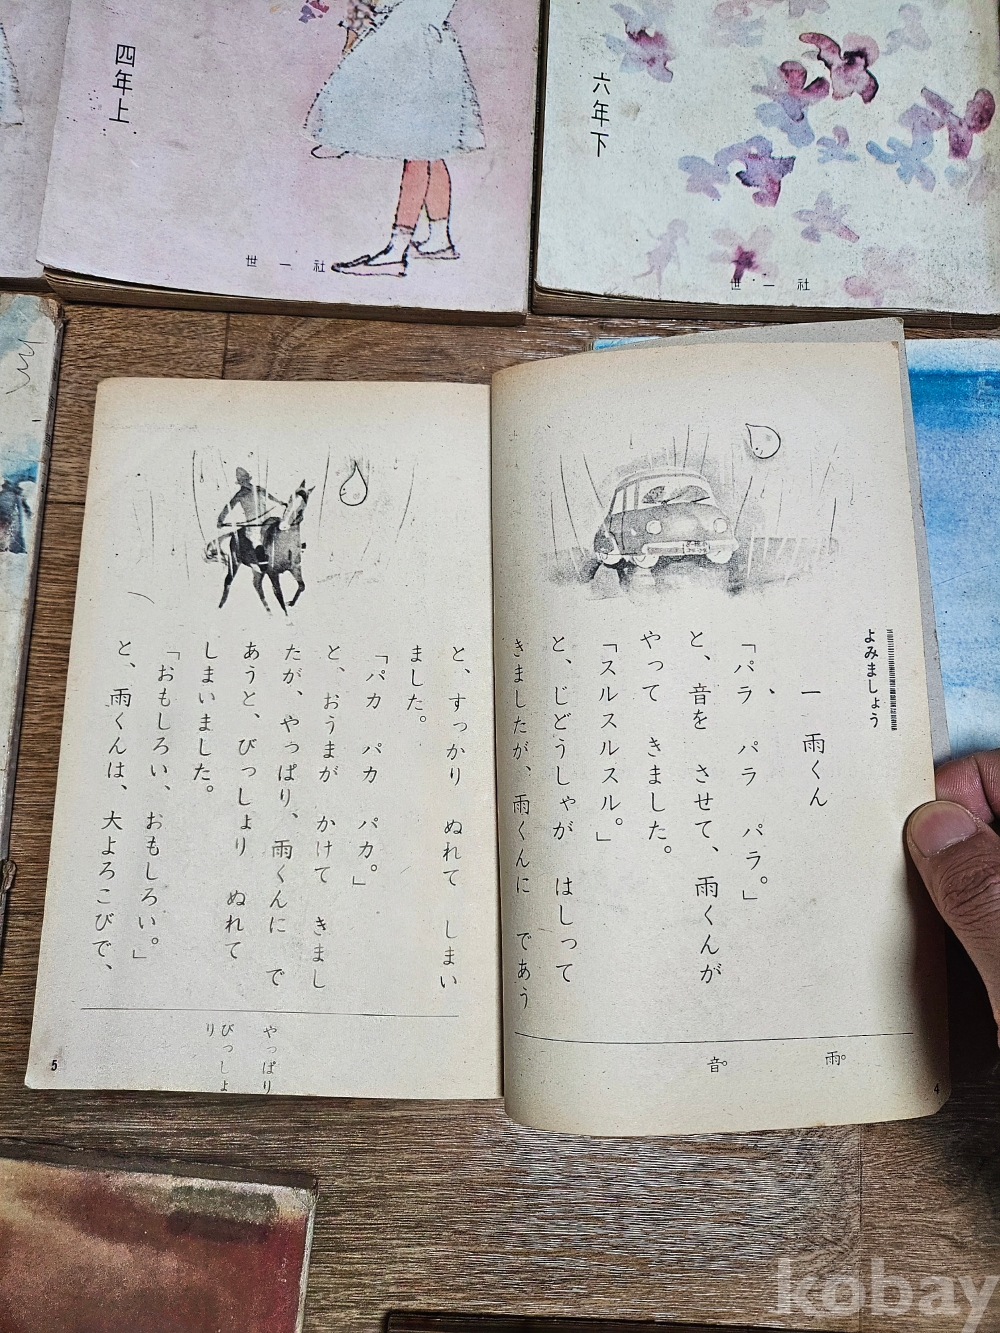 四年上
世一社
六年下
世一社
よみましょう
一 雨くん
「パラ パラ パラ。」
と、音を させて、雨くんが
やって きました。
「スルスルスル。」
と、じどうしゃが はしって
きましたが、雨くんに であう
雨。
音。
4
と、すっかり ぬれて しまい
ました。
「パカ パカ パカ。」
と、おうまが かけて きまし
たが、やっぱり、雨くんに で
あうと、びっしょり ぬれて
しまいました。
「おもしろい、おもしろい。」
と、雨くんは、大よろこびで、
やっぱり
びっしょ
り
5
kobay